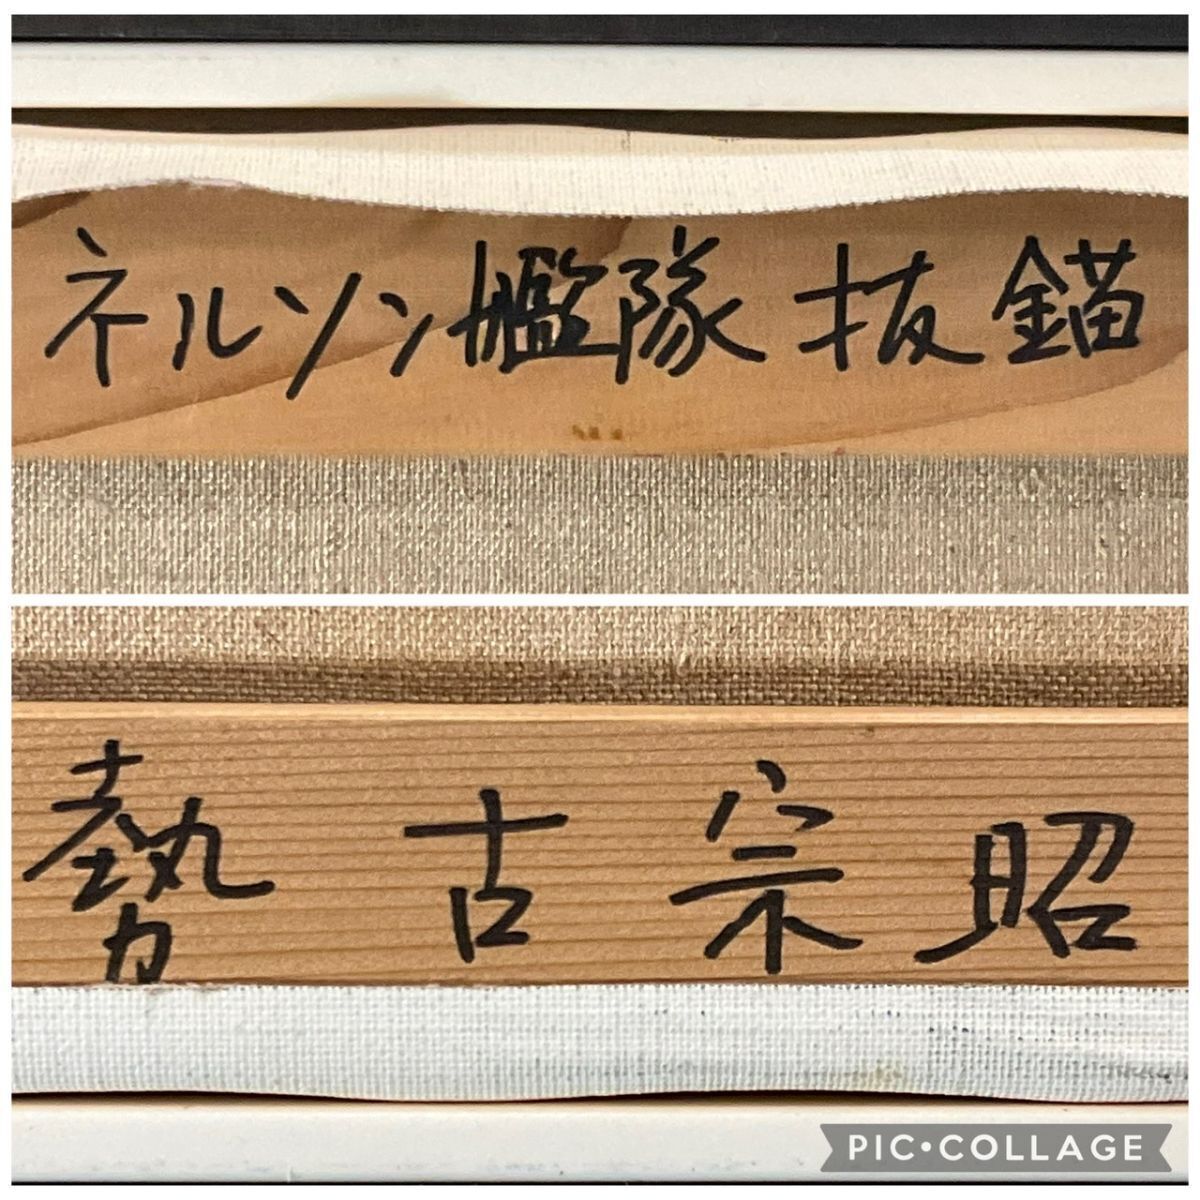 ネルソン艦隊抜錨
勢古宗昭
PIC•COLLAGE